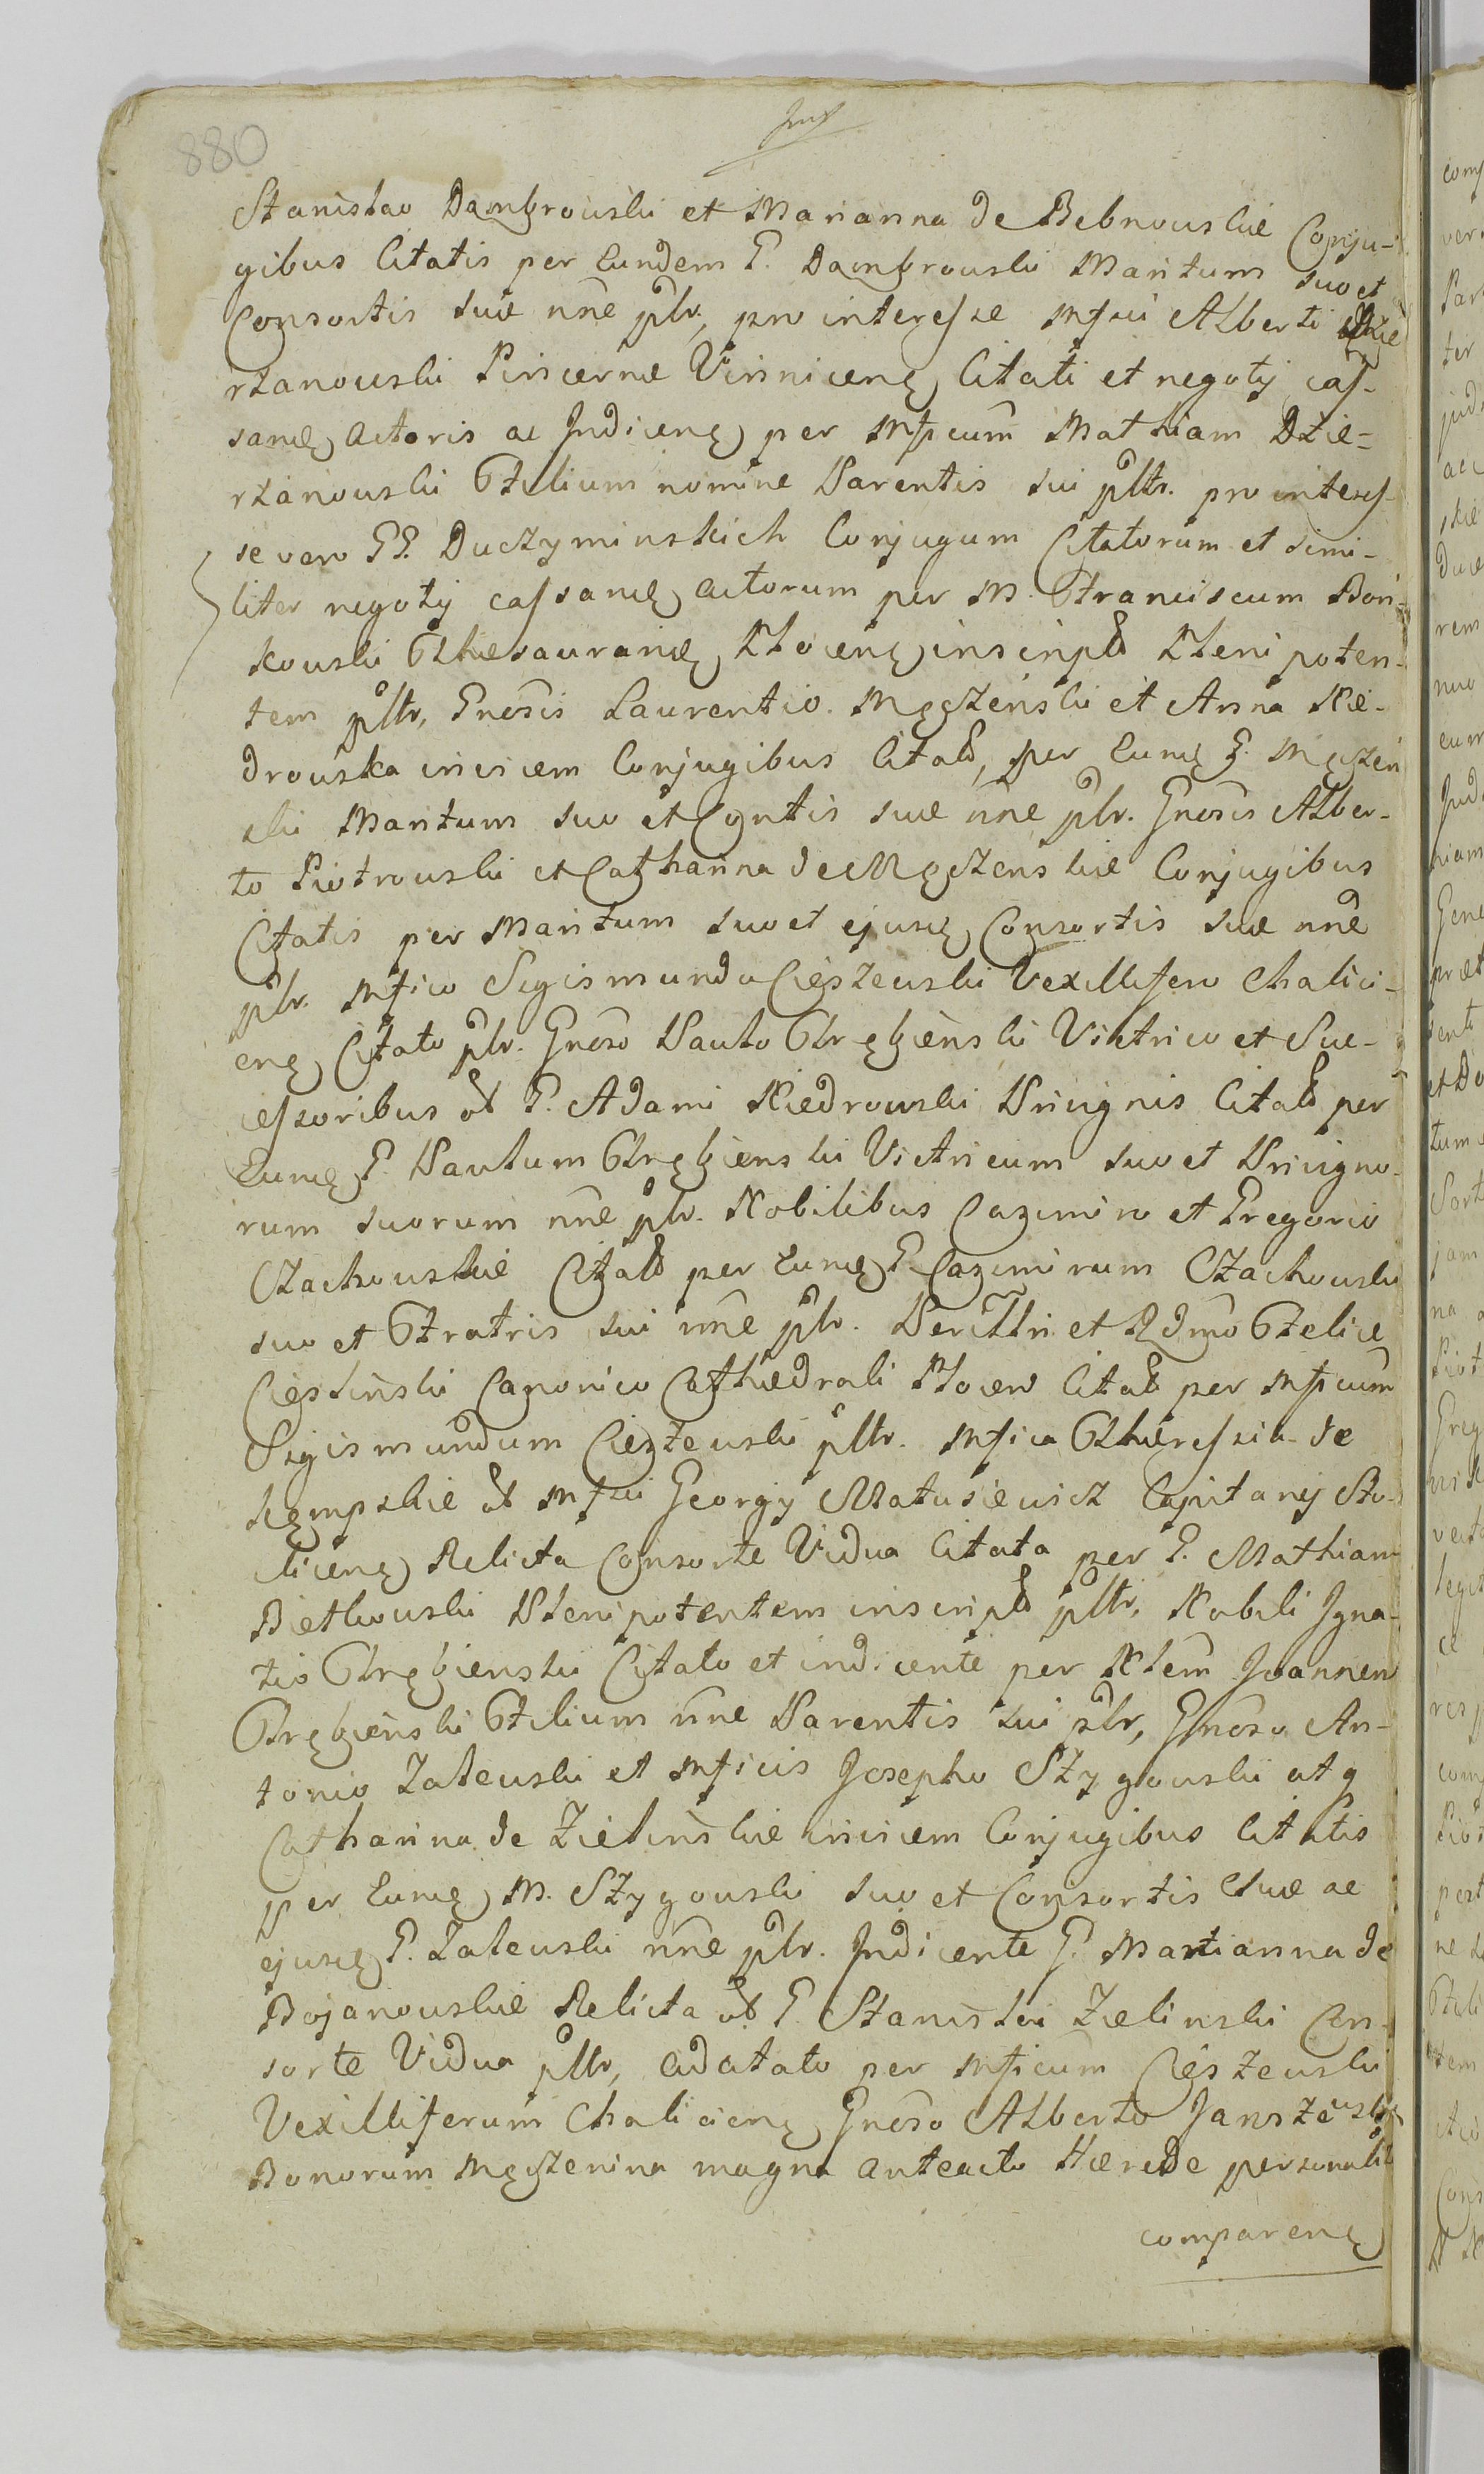 880
Stanislao Dąmbrowski et Marianna de Bebnowskie Conju-
gibus Citatis per Eundem G. Dąmbrowski Maritum suo et
Consortis suæ nne plr, pro interesse Mfici Alberti Dzie
rżanowski Pincernæ Vinnicens Citati et negotij cas-
sans Actoris ac Indicens per Mficum Mathiam Dzie-
rżanowski Filium nomine Parentis sui pltr. pro interes-
se vero GG. Duczyminskich Conjugum Citatorum et simi-
liter negotij cassans Actorum per M. Franciscum Bon-
kowski Thesaurarium Plocens inscript Plenipoten-
tem pltr, Gnosis Laurentio Męczenski et Anna Nie-
drowska invicem Conjugibus Citat, per Eund G. Męczen
ski Maritum suo et Cosortis suæ nne plr. Gnosis Alber-
to Piotrowski et Catharina de Męczenskie Conjugibus
Citatis per Maritum suo et ejusd Consortis suæ nne
plr. Mfico Sigismundo Cieszewski Vexillifero Chalici-
ens Citato plr. Gnoso Paulo Chrębienski Victrico et Suc-
cessoribus ol G. Adami Niedrowski Privignis Citat per
Eund G. Paulum Chrębienski Victricum suo et Privigno-
rum suorum nne plr. Nobilibus Cazimiro et Gregorio
Czachowskie Citat per Eund G. Cazimirum Czachowski
suo et Fratris sui nne plr. Perilltri et Rdmo Felice
Cieslinski Canonico Cathædrali Plocen Citat per Mficum
Sigismundum Cieszewski pltr. Mfica Theressia de
Kempskie ol Mfici Georgij Matusiewicz Capitanej Sto-
klicens Relicta Consorte Vidua Citata per G. Mathiam
Bietkowski Plenipotentem inscript pltr, Nobili Igna-
tio Chrębienski Citato et indicente per Nlem Joannem
Chrębienski Filium nne Parentis sui plr, Gnoso An-
tonio Zalewski et Mficis Josepho Szygowski atq
Catharina de Zielinskie invicem Conjugibus Citatis
per Eund M. Szygowski suo et Consortis suæ ac
ejusd G. Zalewski nne plr. Indicente G. Marianna de
Bojanowskie Relicta ol G. Stanislai Zielinski Con-
sorte Vidua pltr, Adcitato per Mficum Cieszewski
Vexilliferum Chalicens Gnoso Alberto Janszewski
Bonorum Męczenina magna anteacto Hærede personalit
comparens